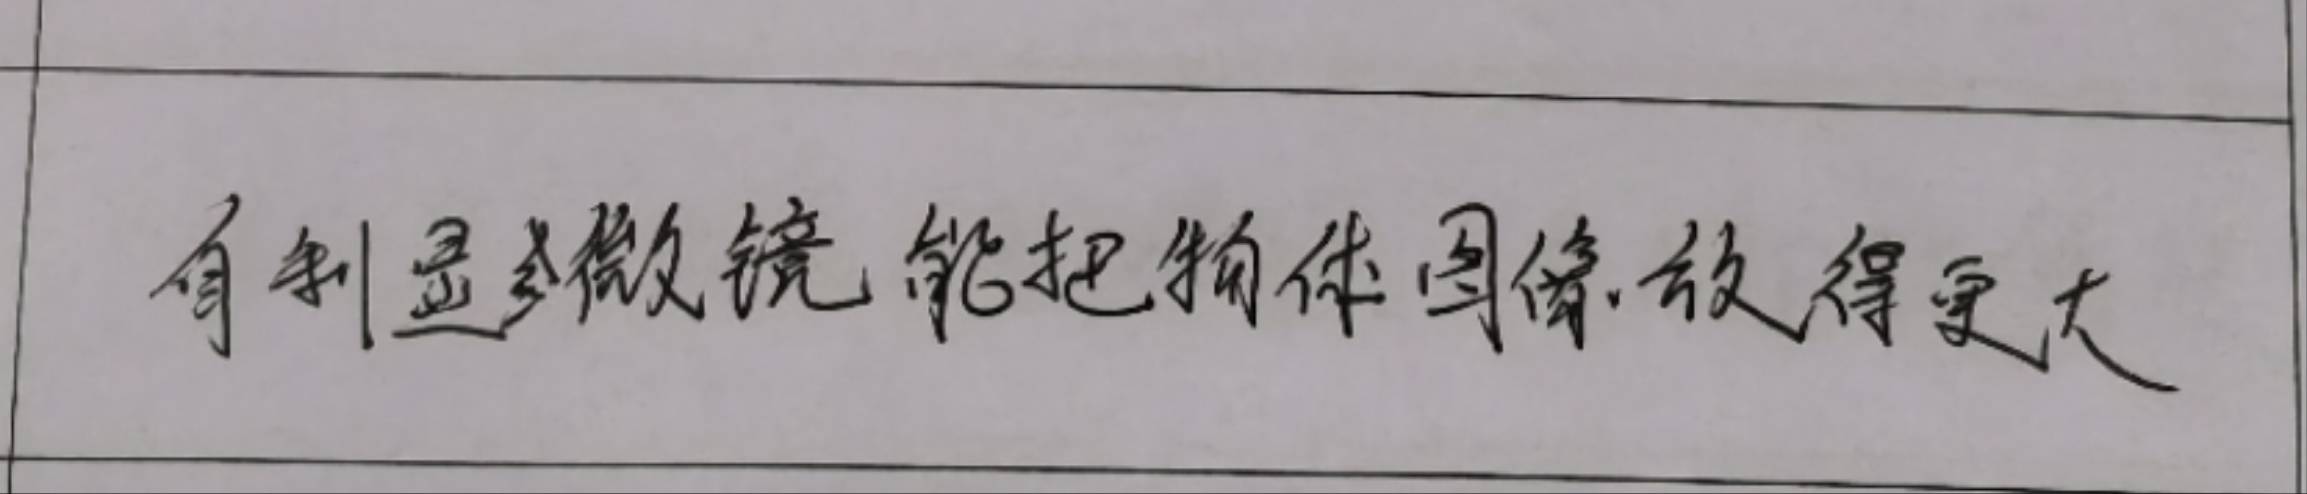 有利显微镜能把物体图像放得更大